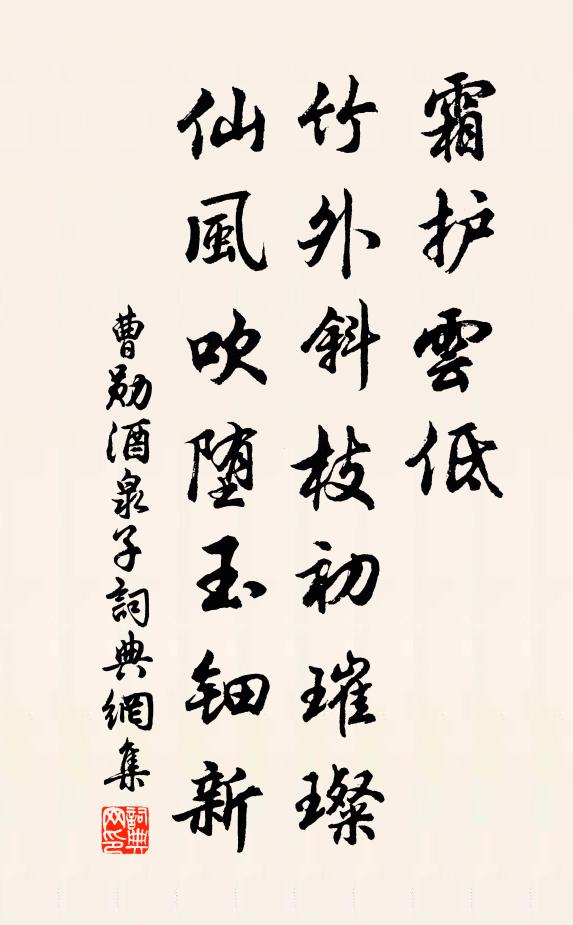 霜护雲低
竹外斜枝初璀璨
仙風吹堕玉钿新
曹勋酒泉子詞典網集
詞典網印